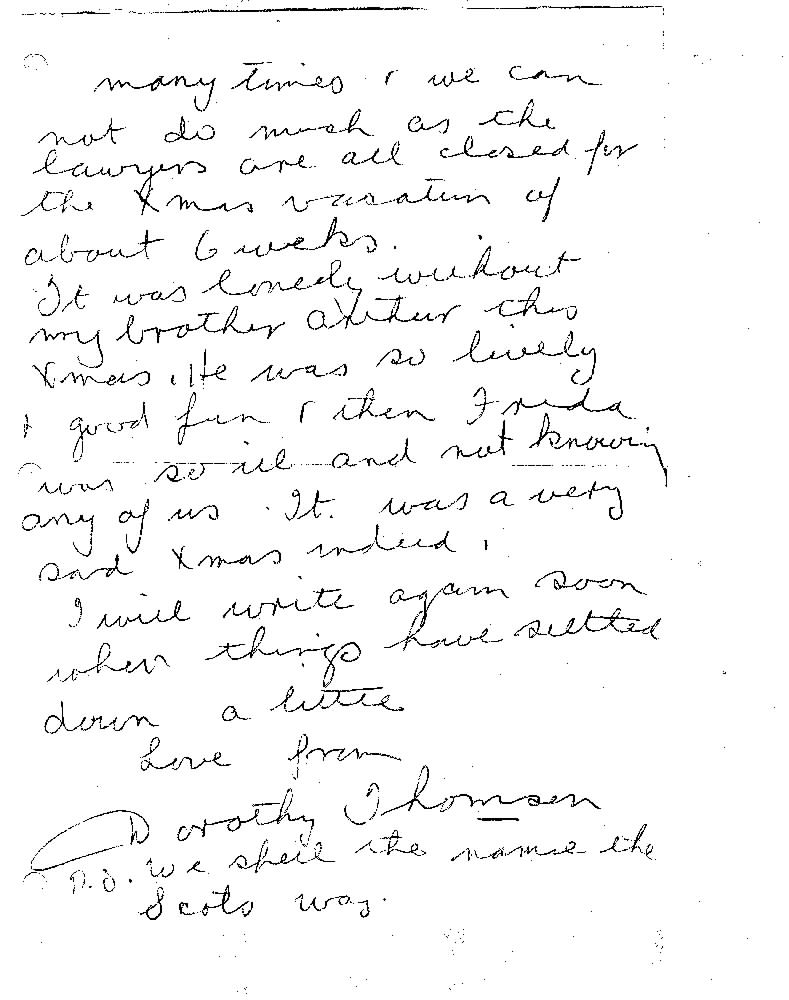 many times & we can
not do much as the
lawyers are all closed for
the Xmas vacation of
about 6 weeks.
It was lonely without
my brother Arthur this
Xmas. He was so lively
& good fun & then Freda
was so ill and not knowing
any of us. It was a very
sad Xmas indeed.
I will write again soon
when things have settled
down a little
Love from
Dorothy Thomson
P.S. We spell the name the
Scots way.